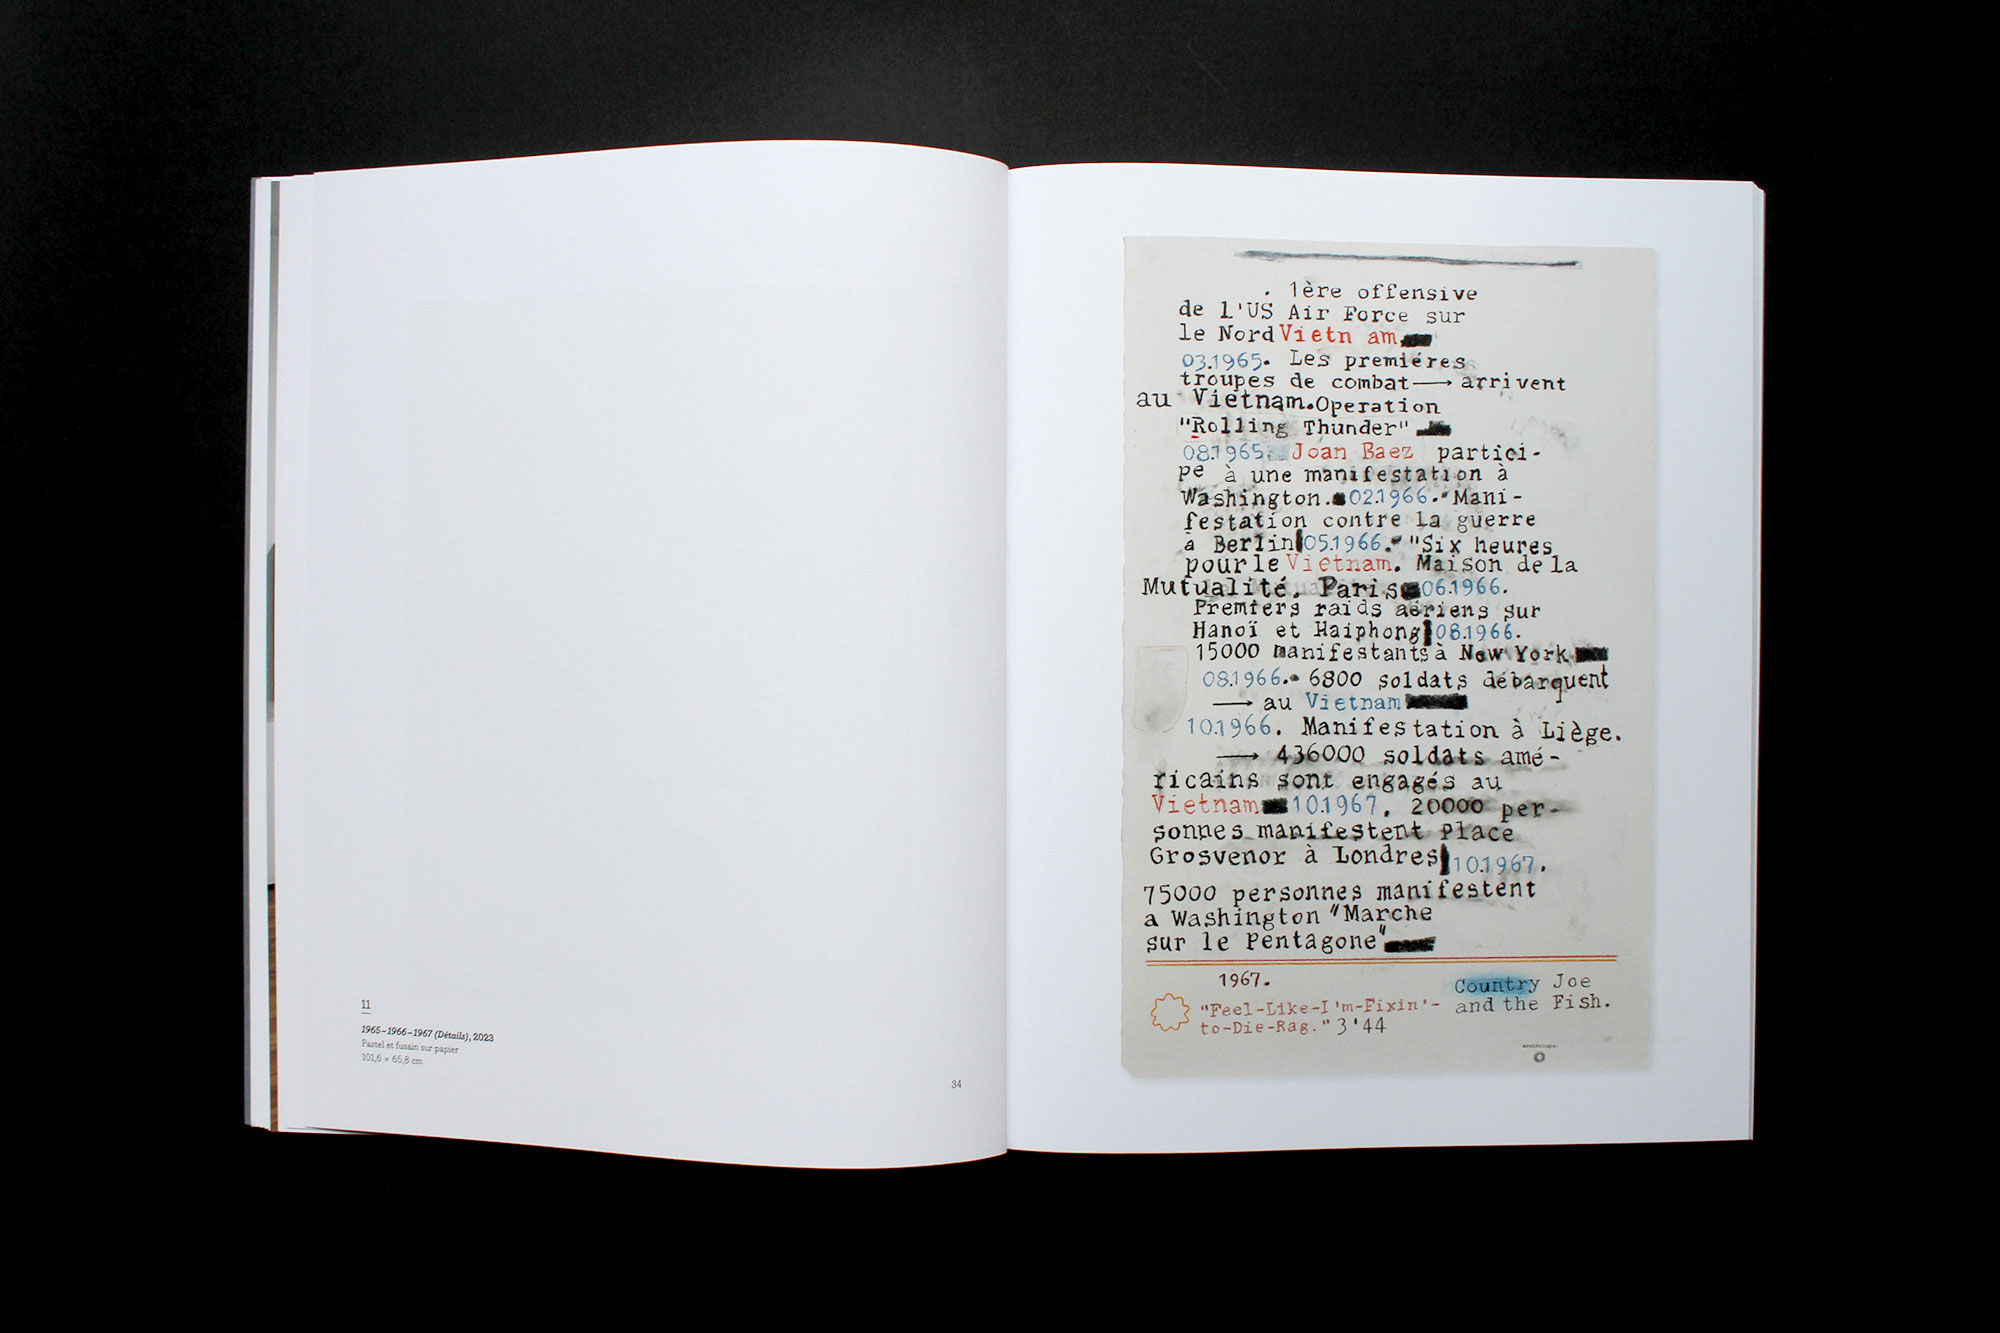 11
1965–1966–1967 (Détails), 2023
Pastel et fusain sur papier
101,6 × 65,8 cm
34
. 1ère offensive
de l'US Air Force sur
le Nord Vietn am
03.1965. Les premiéres
troupes de combat ⟶ arrivent
au Vietnam. Operation
"Rolling Thunder"
08.1965. Joan Baez partici-
pe à une manifestation à
Washington. 02.1966. Mani-
festation contre la guerre
à Berlin 05.1966. "Six heures
pour le Vietnam. Maison de la
Mutualité. Paris 06.1966.
Premiers raids aériens sur
Hanoï et Haiphong 08.1966.
15000 manifestants à New York
08.1966. 6800 soldats débarquent
⟶ au Vietnam
10.1966. Manifestation à Liège.
⟶ 436000 soldats amé-
ricains sont engagés au
Vietnam 10.1967. 20000 per-
sonnes manifestent Place
Grosvenor à Londres 10.1967.
75000 personnes manifestent
a Washington "Marche
sur le Pentagone"
1967.
"Feel-Like-I'm-Fixin'-
to-Die-Rag." 3'44
Country Joe
and the Fish.
archéologie.